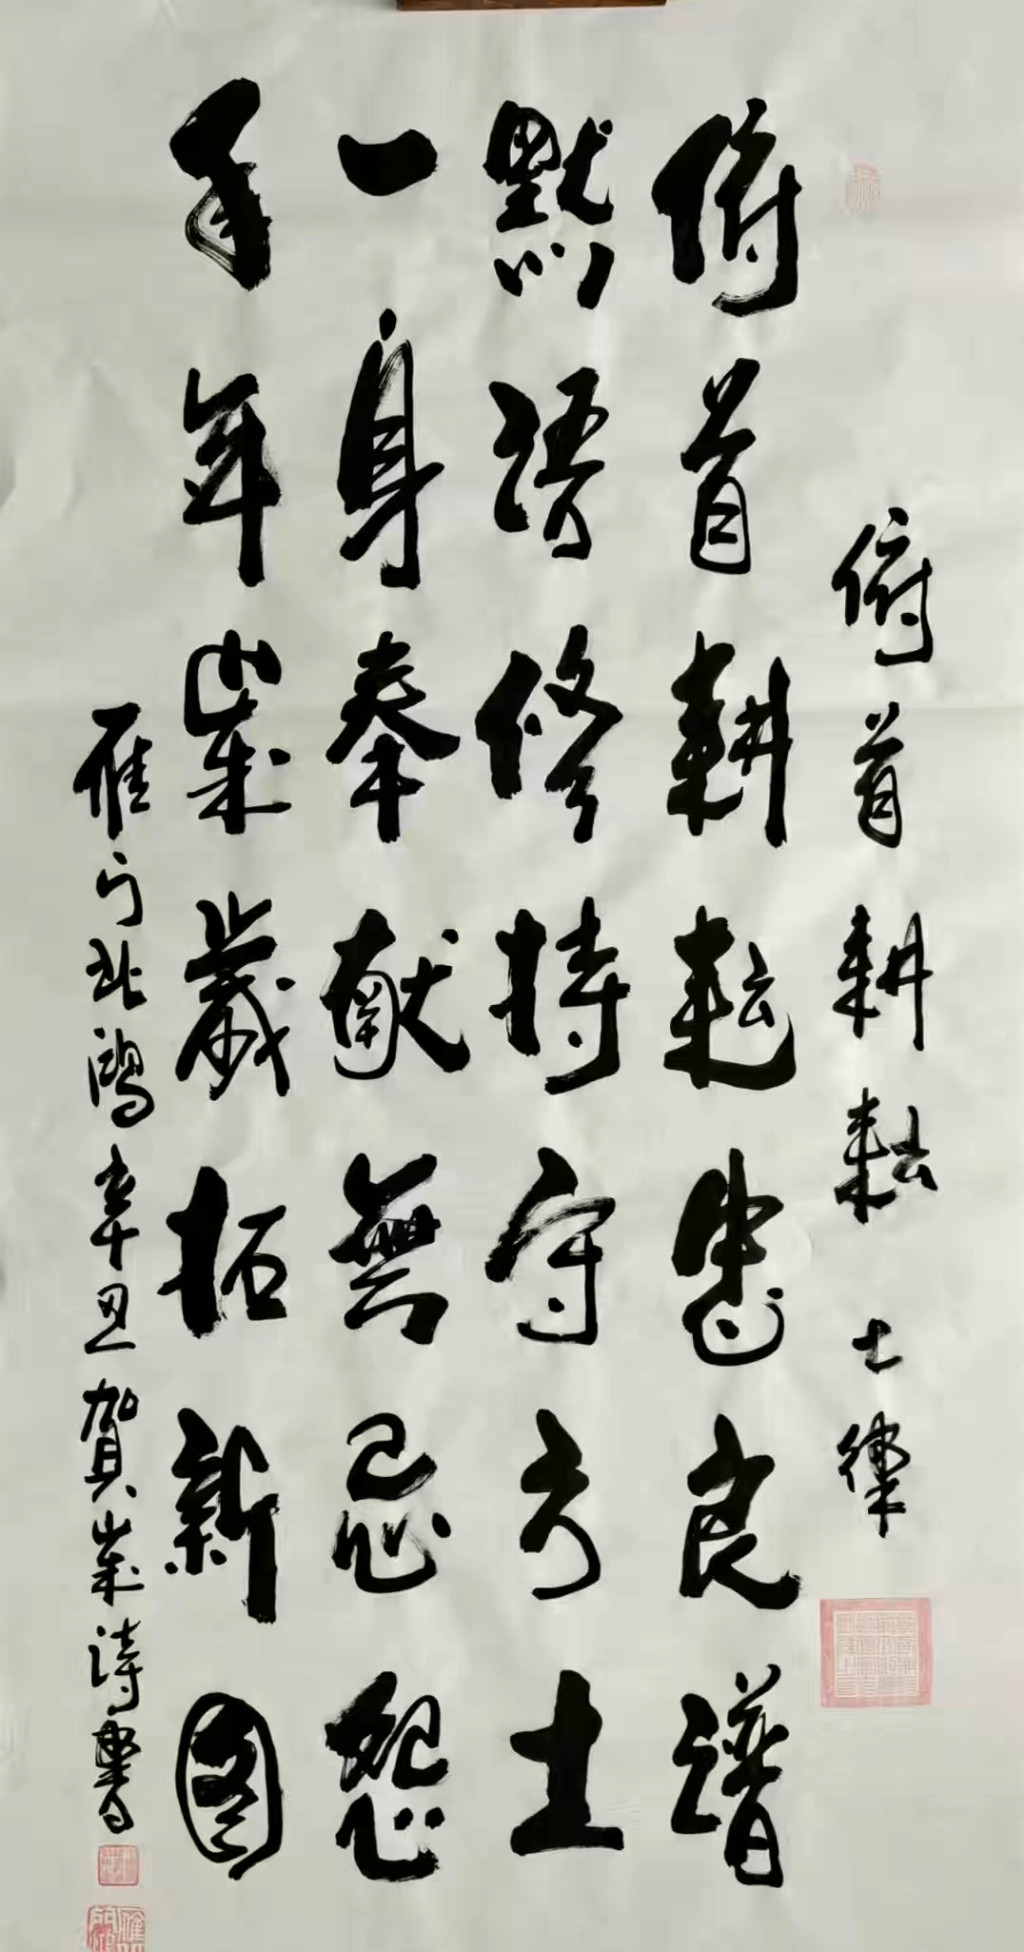 俯首耕耘 七律
俯首耕耘書良譜
默語修持守方土
一身奉獻無忌怨
年年歲歲拓新圖
雁門北鴻辛丑賀歲詩書